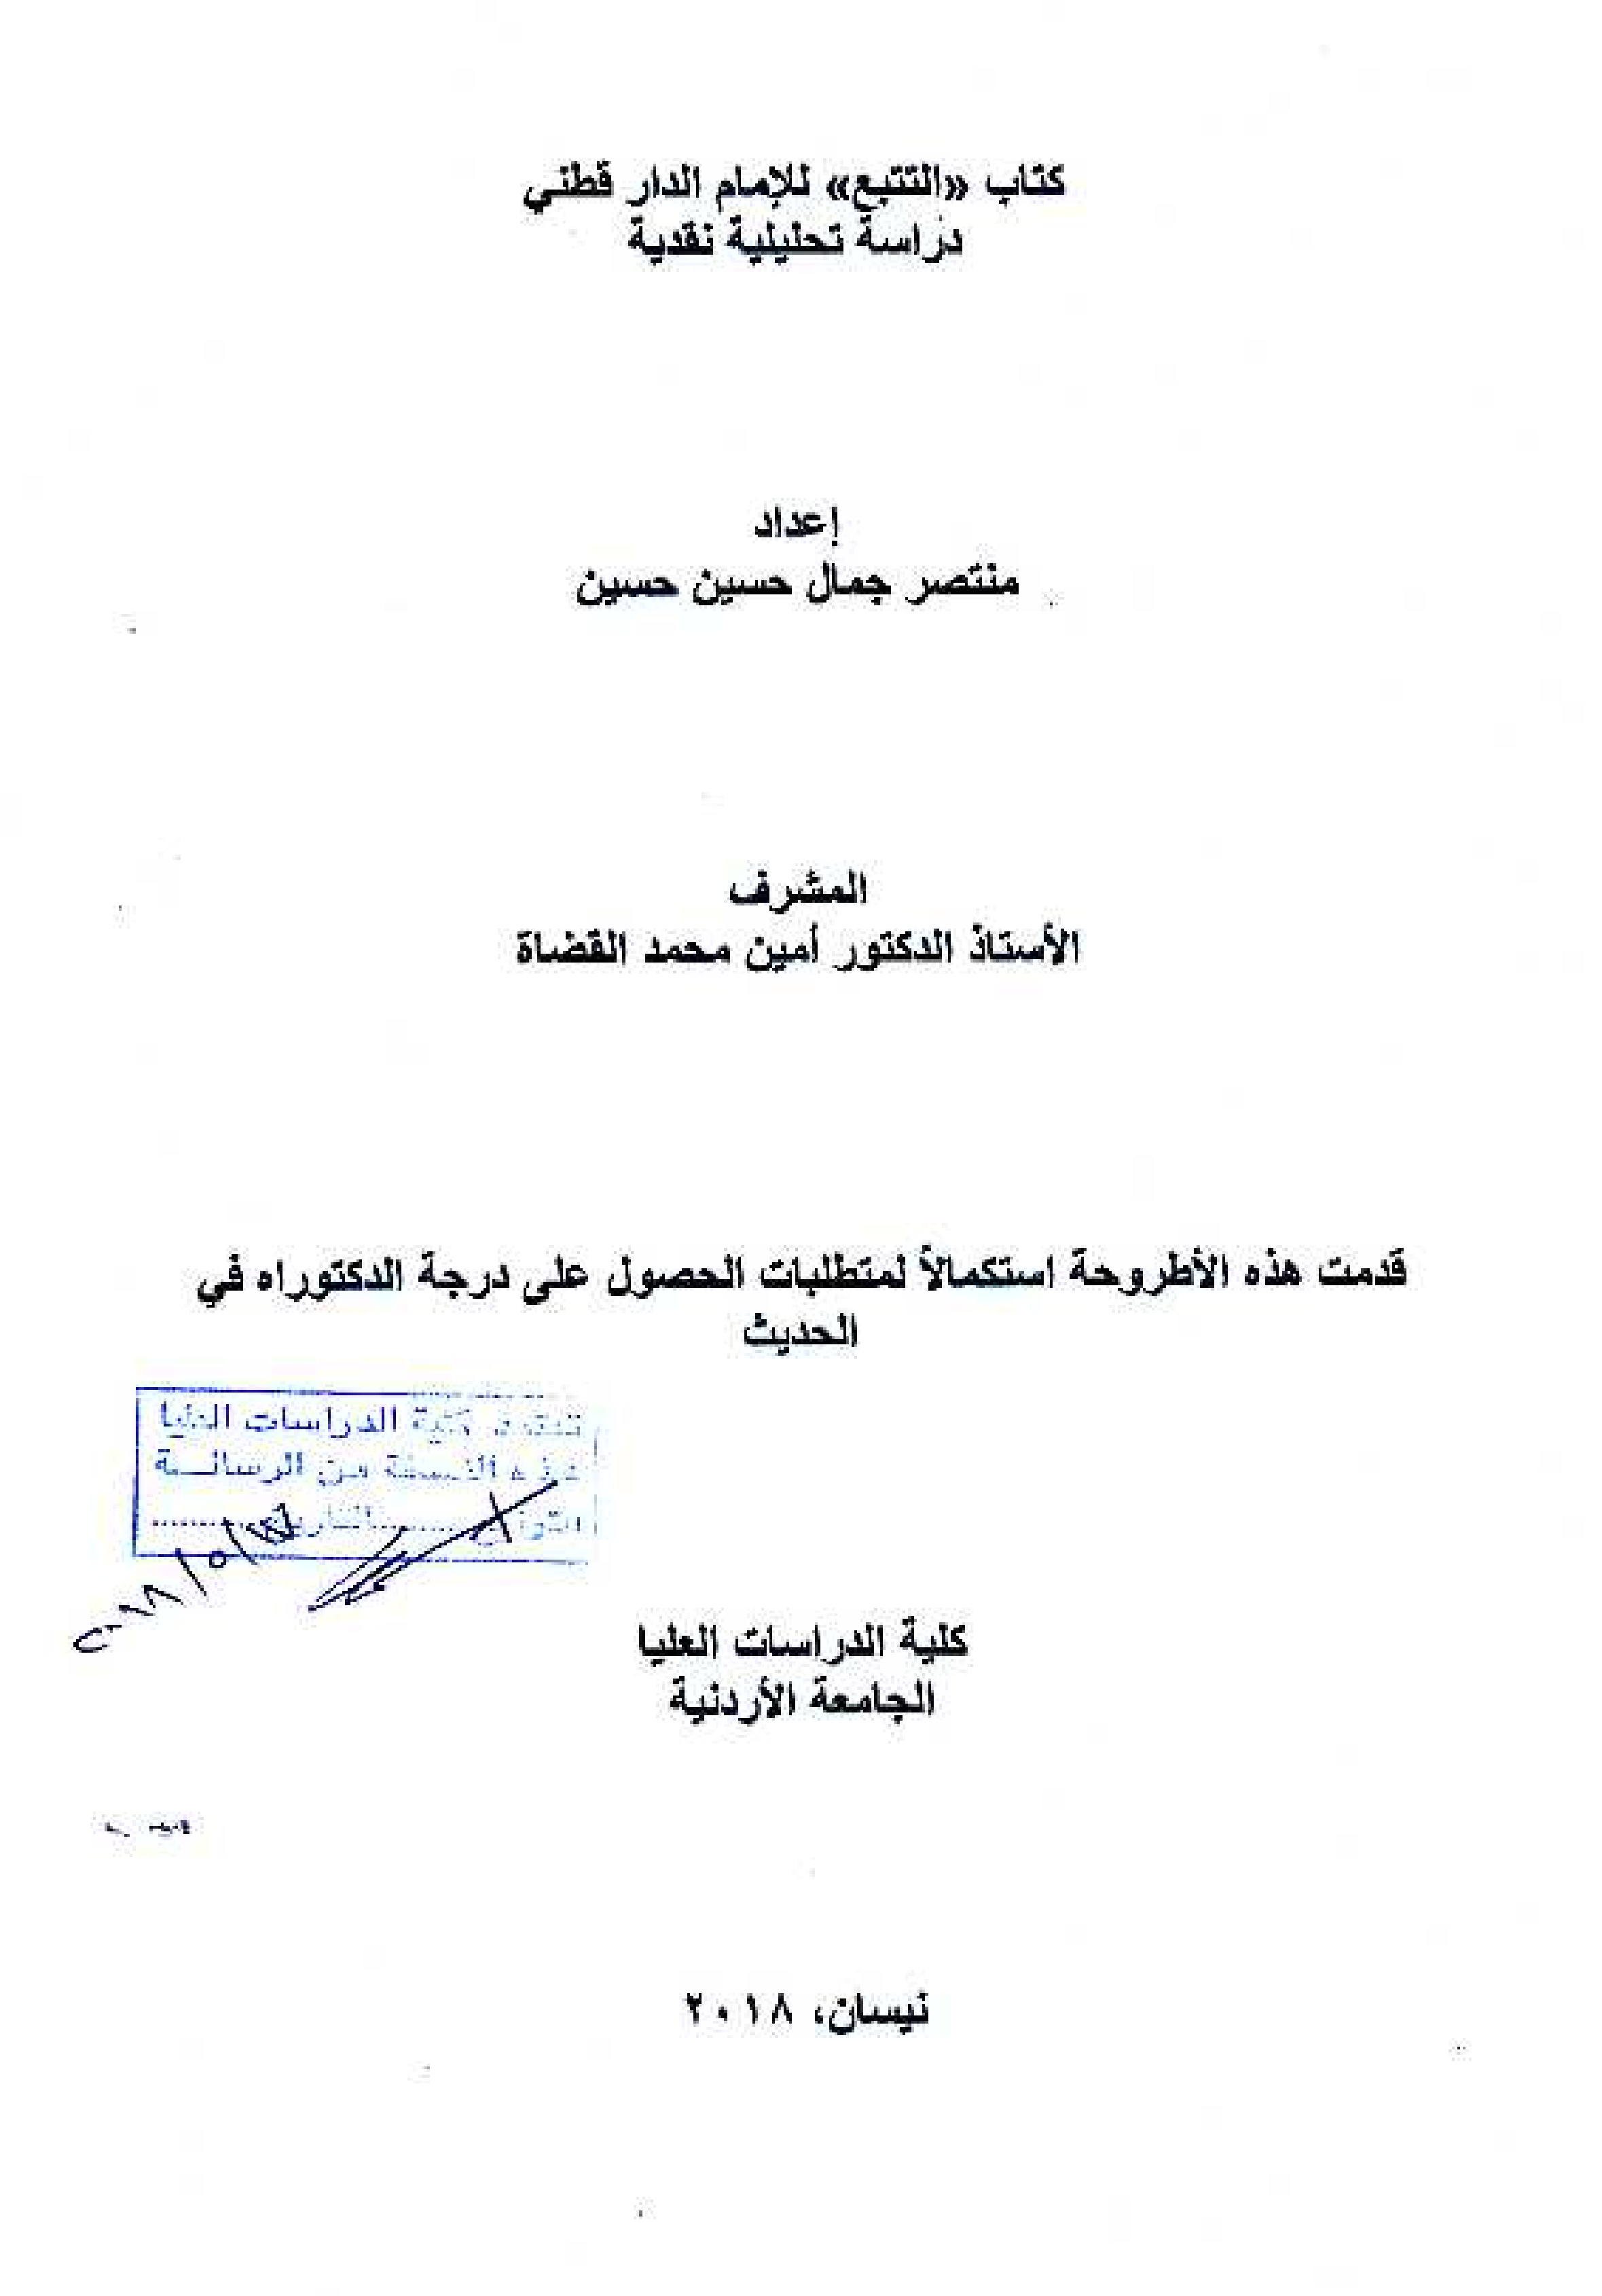 كتاب «التتبع» للإمام الدار قطني
دراسة تحليلية نقدية
إعداد
منتصر جمال حسين حسين
المشرف
الأستاذ الدكتور أمين محمد القضاة
قدمت هذه الأطروحة استكمالاً لمتطلبات الحصول على درجة الدكتوراه في
الحديث
تعتمد كلية الدراسات العليا
هذه النسخة من الرسالــة
التوقيع............التاريخ............
كلية الدراسات العليا
الجامعة الأردنية
نيسان، ٢٠١٨